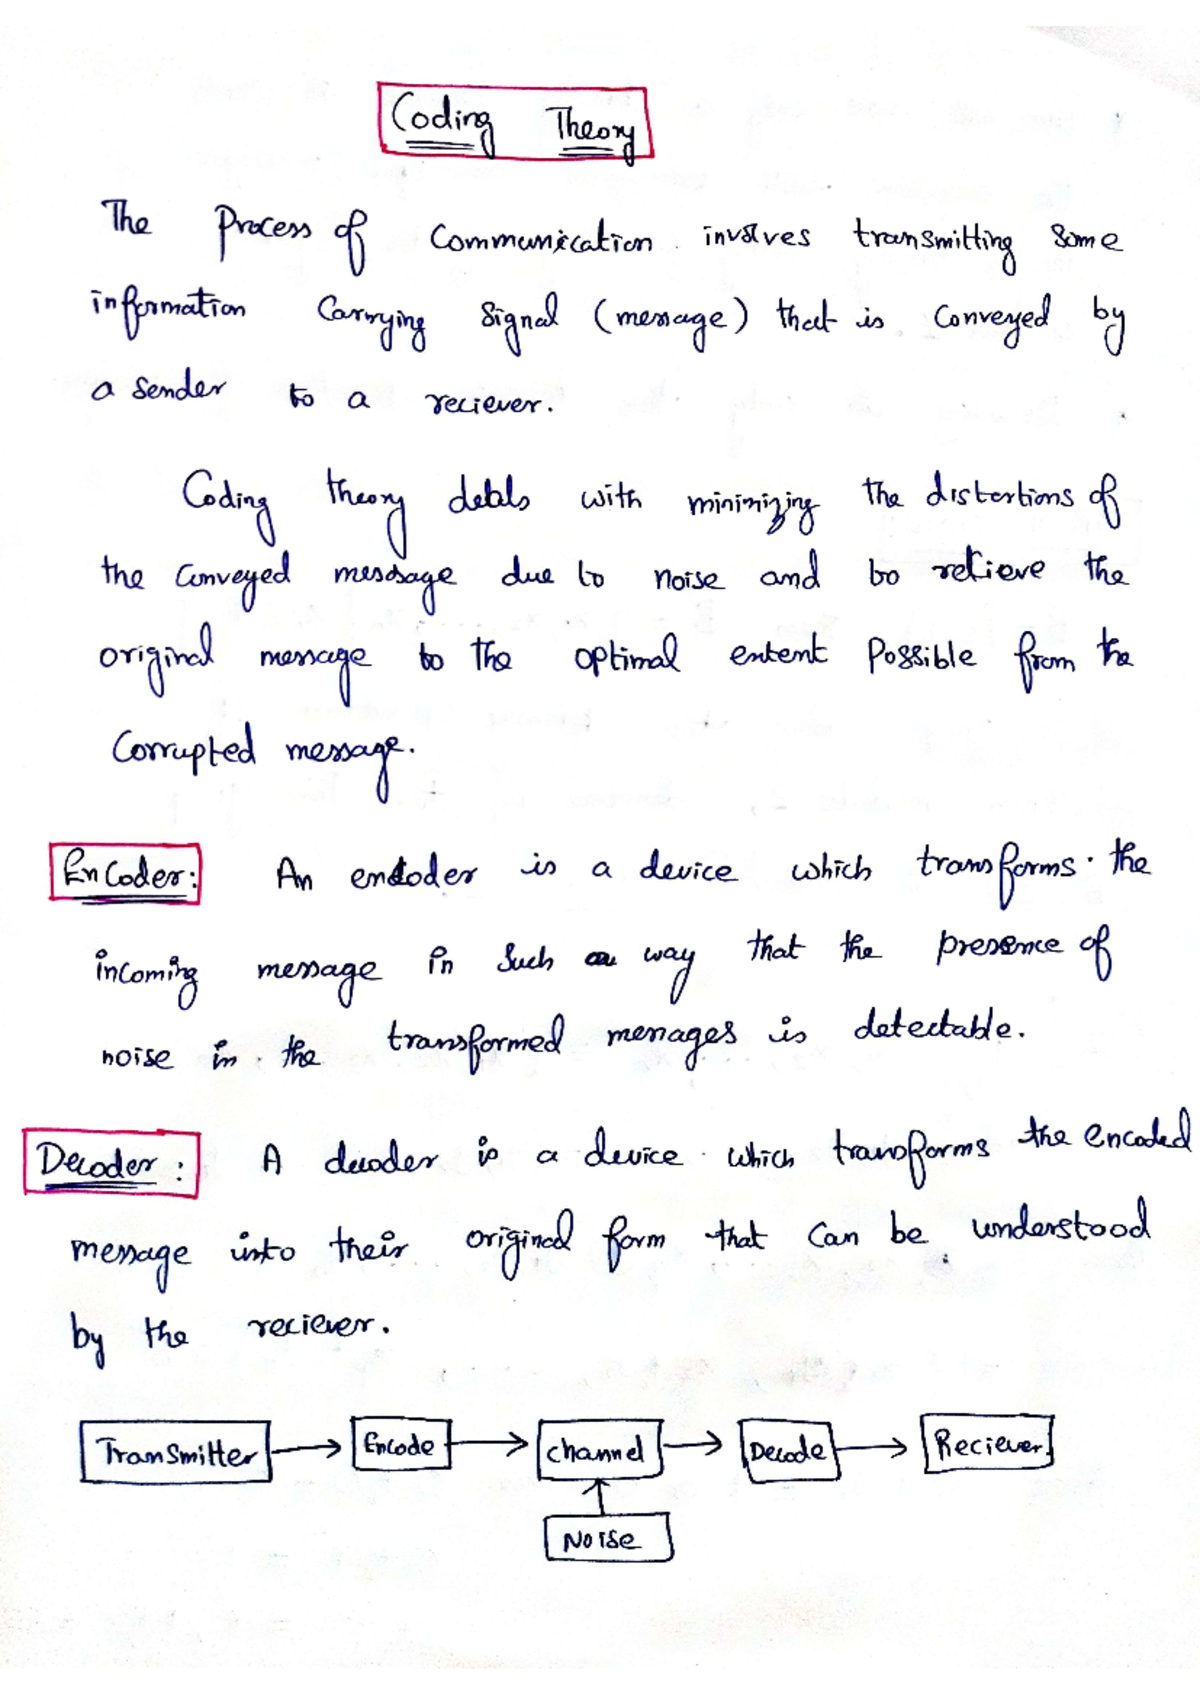 Coding Theory
The Process of Communication involves transmitting Some
information Carrying Signal (message) that is Conveyed by
a Sender to a reciever.
Coding theory deals with minimizing the distortions of
the Conveyed message due to noise and to retieve the
original message to the optimal entent Possible from the
Corrupted message.
EnCoder: An encoder is a device which transforms the
incoming message in Such a way that the presence of
noise in the transformed messages is detectable.
Decoder: A decoder is a device which transforms the encoded
message into their original form that Can be understood
by the reciever.
TranSmitter Encode channel Decode Reciever
NoiSe